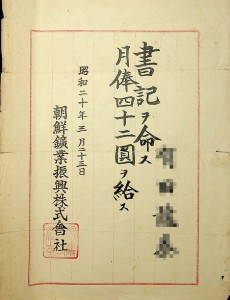 書記ヲ命ス
月俸四十二圓ヲ給ス
昭和二十年三月二十三日
朝鮮鑛業振興株式會社